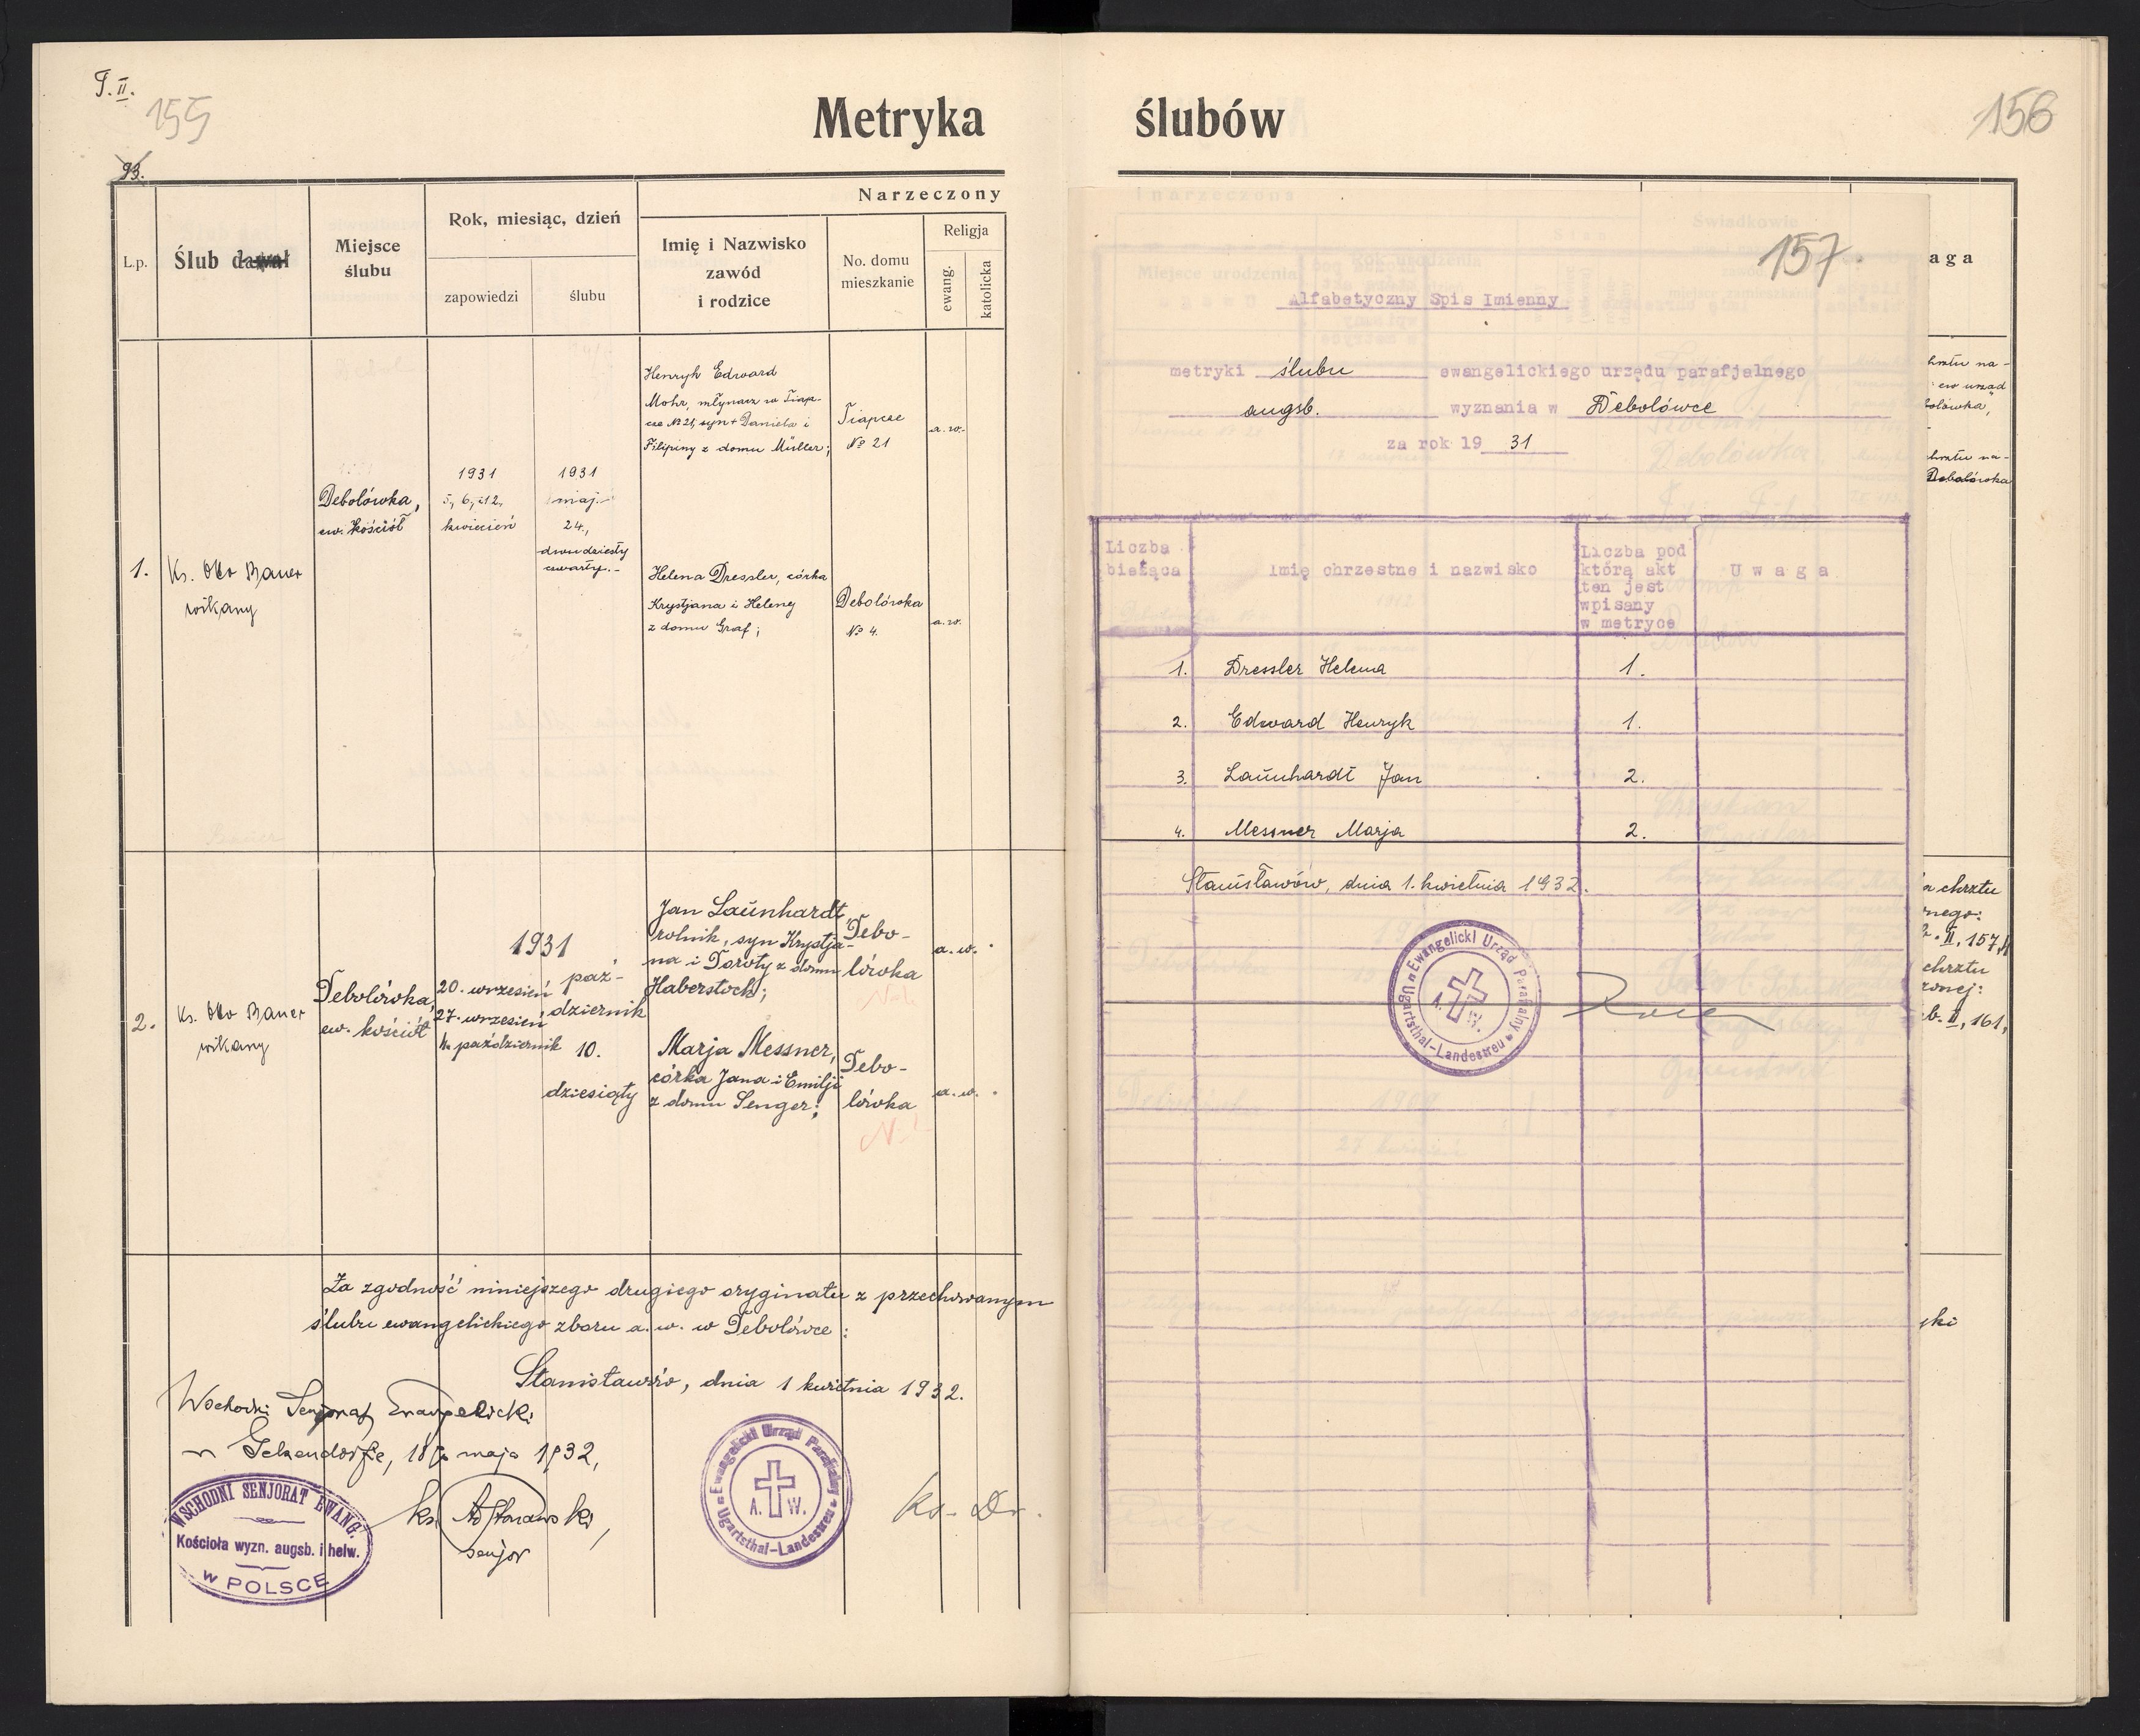 T. II.
155
93.
Metryka
L.p.
Ślub dawał
Miejsce
ślubu
Rok, miesiąc, dzień
zapowiedzi
ślubu
Narzeczony
Imię i Nazwisko
zawód
i rodzice
No. domu
mieszkanie
Religja
ewang.
katolicka
1.
Ks. Otto Bauer
wikary
Debolówka,
ew. kościół
1931
5, 6, i 12,
kwiecień
1931
maj.-
24.,
dwudziesty
czwarty.-
Henryh Edward
Mohr, młynarz w Tiap-
cze № 21, syn + Daniela i
Filipiny z domu Müller;
Tiapcze
№ 21
a. w.-
Helena Dressler, córka
Krystjana i Heleny
z domu Graf;
Debolówka
№ 4.
a. w.
2.
Ks. Otto Bauer
wikary
Debolówka,
ew. kościół
1931
20. wrzesień
27. wrzesień
4. październik
paź-
dziernik
10.
dziesiąty
Jan Laŭnhardt,
rolnik, syn Krystja-
na i Doroty z domu
Haberstock;
Debo-
lówka
a. w.
Marja Messner,
córka Jana i Emilji
z domu Senger;
Debo-
lówka
a. w.
Za zgodność niniejszego drugiego oryginału z przechowanym
ślubu ewangelickiego zboru a. w. w Debolówce:
Stanisławów, dnia 1 kwietnia 1932.
Wschodni Senjorat Ewangelicki
w Gelsendorfie, 18 maja 1932,
ks.
senjor
WSCHODNI SENJORAT EWANG.
Kościoła wyzn. augsb. i helw.
w POLSCE
Ewangelicki Urząd Parafialny
A. W.
Ugartsthal-Landestreu
Ks. Dr.
ślubów
156
157.
Alfabetyczny Spis Imienny
metryki ślubu ewangelickiego urzędu parafjalnego
augsb. wyznania w Debolówce
za rok 19 31
Liczba
bieżąca
Imię chrzestne i nazwisko
Liczba pod
którą akt
ten jest
wpisany
w metryce
Uwaga
1. Dressler Helena 1.
2. Edward Henryk 1.
3. Laŭnhardt Jan 2.
4. Messner Marja 2.
Stanisławów, dnia 1. kwietnia 1932.
Ewangelicki Urząd Parafialny
A. W.
Ugartsthal-Landestreu
aga
chrztu na-
ew urząd
bolówka,
chrztu na-
Debolówka
a chrztu
nego:
b. II, 157,
chrztu
zonej:
b. II, 161,
ski